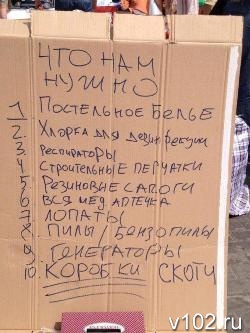 ЧТО НАМ
НУЖНО
1 ПОСТЕЛЬНОЕ БЕЛЬЕ
2. ХЛОРКА ДЛЯ ДЕЗИНФЕКЦИИ
3. РЕСПИРАТОРЫ
4 СТРОИТЕЛЬНЫЕ ПЕРЧАТКИ
5 РЕЗИНОВЫЕ САПОГИ
6 ВСЯ МЕД АПТЕЧКА
7 ЛОПАТЫ
8. ПИЛЫ / БЕНЗОПИЛЫ
9 ГЕНЕРАТОРЫ
10. КОРОБКИ СКОТЧ
v102.ru